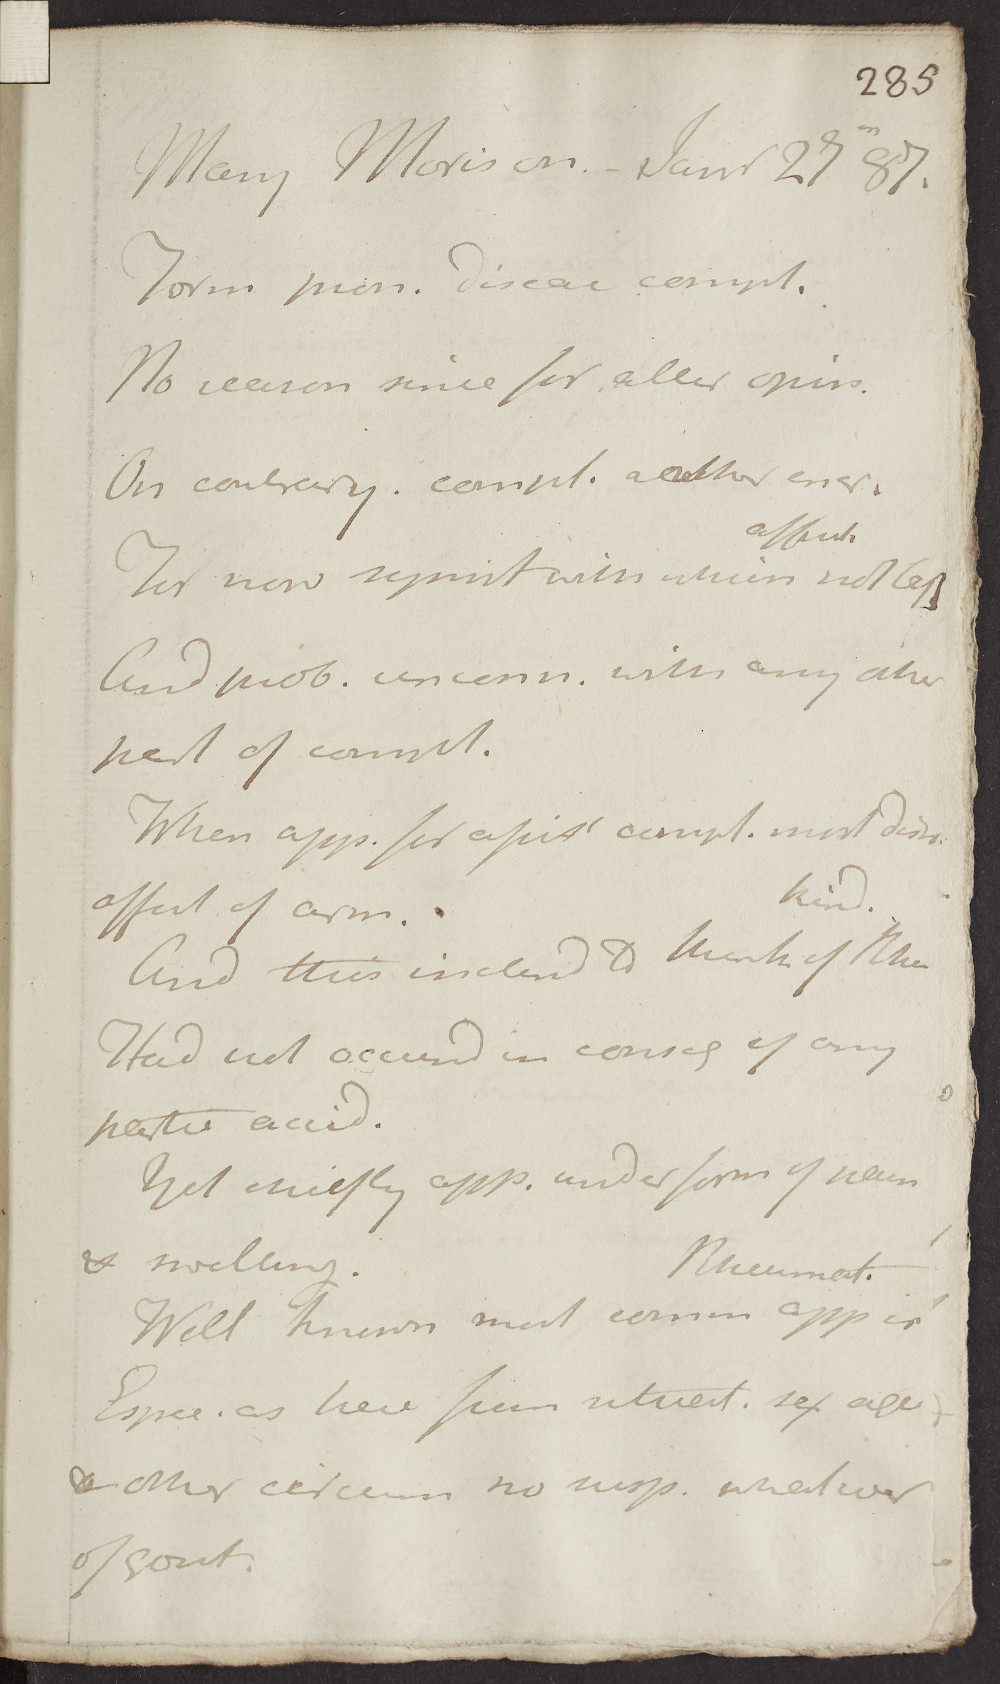 285
Mary Morison. - Janr 27 87.
Form pron. diseae compl.
No reason since for alter opin.
On contrary. compl. another ener.
affect.
For now report with which not less
And prob. unconn. with any other
part of compl.
When app. for assist compl. most distr.
affect of arm.
kind.
And this inclend to think of Rheu
Had not occurrd in conseq of any
partic accid.
Yet chiefly app. under form of pain
& swelling.
Rheumat.
Well known most comm app is
Espec. as here from situat. sex age
& other circum no susp. whatever
of gout.